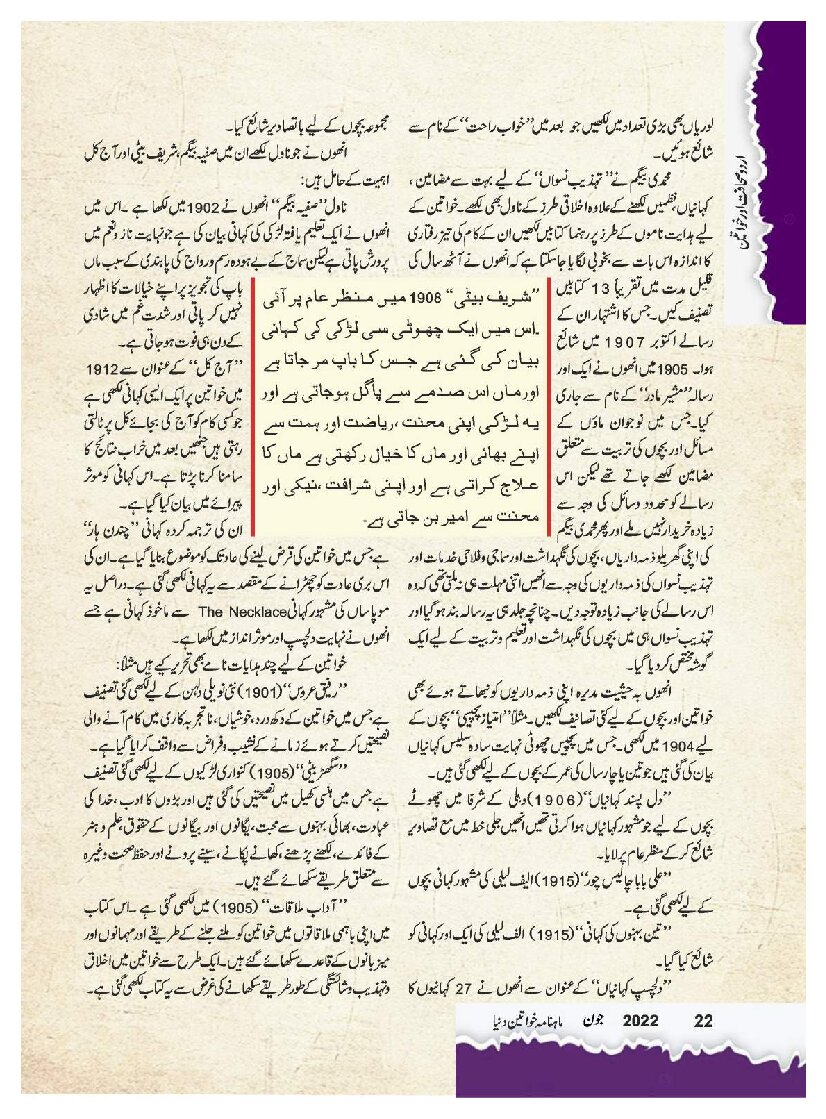 لوریاں بھی بڑی تعداد میں لکھیں جو بعد میں ’’خواب راحت‘‘ کے نام سے
شائع ہوئیں۔
محمدی بیگم نے ’’تہذیب نسواں‘‘ کے لیے بہت سے مضامین،
کہانیاں، نظمیں لکھنے کے علاوہ اخلاقی طرز کے ناول بھی لکھے۔ خواتین کے
لیے ہدایت ناموں کے طرز پر رہنما کتابیں لکھیں ان کے کام کی تیز رفتاری
کا اندازہ اس بات سے بخوبی لگایا جاسکتا ہے کہ انھوں نے آٹھ سال کی
قلیل مدت میں تقریباً 13 کتابیں
تصنیف کیں۔ جس کا اشتہار ان کے
رسالے اکتوبر 1907 میں شائع
ہوا۔ 1905 میں انھوں نے ایک اور
رسالہ ’’مشیر مادر‘‘ کے نام سے جاری
کیا۔ جس میں نوجوان ماؤں کے
مسائل اور بچوں کی تربیت سے متعلق
مضامین لکھے جاتے تھے لیکن اس
رسالے کو محدود وسائل کی وجہ سے
زیادہ خریدار نہیں ملے اور پھر محمدی بیگم
کی اپنی گھریلو ذمہ داریاں، بچوں کی نگہداشت اور سماجی و فلاحی خدمات اور
تہذیب نسواں کی ذمہ داریوں کی وجہ سے انھیں اتنی مہلت ہی نہ ملتی تھی کہ وہ
اس رسالے کی جانب زیادہ توجہ دیں۔ چنانچہ جلد ہی یہ رسالہ بند ہوگیا اور
تہذیب نسواں ہی میں بچوں کی نگہداشت اور تعلیم و تربیت کے لیے ایک
گوشہ مختص کردیا گیا۔
انھوں بہ حیثیت مدیرہ اپنی ذمہ داریوں کو نبھاتے ہوئے بھی
خواتین اور بچوں کے لیے کئی تصانیف لکھیں۔ مثلاً ’’امتیاز پچیسی‘‘ بچوں کے
لیے 1904 میں لکھی۔ جس میں پچیس چھوٹی نہایت سادہ سلیس کہانیاں
بیان کی گئی ہیں جو تین یا چار سال کی عمر کے بچوں کے لیے لکھی گئی ہیں۔
’’دل پسند کہانیاں‘‘ (1906) دہلی کے شرفا میں چھوٹے
بچوں کے لیے جو مشہور کہانیاں ہوا کرتی تھیں انھیں جلی خط میں مع تصاویر
شائع کرکے منظر عام پر لایا۔
’’علی بابا چالیس چور‘‘ (1915) الف لیلی کی مشہور کہانی بچوں
کے لیے لکھی گئی ہے۔
’’تین بہنوں کی کہانی‘‘ (1915) الف لیلی کی ایک اور کہانی کو
شائع کیا گیا۔
’’دلچسپ کہانیاں‘‘ کے عنوان سے انھوں نے 27 کہانیوں کا
مجموعہ بچوں کے لیے باتصاویر شائع کیا۔
انھوں نے جو ناول لکھے ان میں صفیہ بیگم، شریف بیٹی اور آج کل
اہمیت کے حامل ہیں:
ناول ’’صفیہ بیگم‘‘ انھوں نے 1902 میں لکھا ہے۔ اس میں
انھوں نے ایک تعلیم یافتہ لڑکی کی کہانی بیان کی ہے جو نہایت ناز و نعم میں
پرورش پاتی ہے لیکن سماج کے بے ہودہ رسم و رواج کی پابندی کے سبب ماں
باپ کی تجویز پر اپنے خیالات کا اظہار
نہیں کر پاتی اور شدت غم میں شادی
کے دن ہی فوت ہوجاتی ہے۔
’’آج کل‘‘ کے عنوان سے 1912
میں خواتین پر ایک ایسی کہانی لکھی ہے
جو کسی کام کو آج کی بجائے کل پر ٹالتی
رہتی ہیں جنھیں بعد میں خراب نتائج کا
سامنا کرنا پڑتا ہے۔ اس کہانی کو موثر
پیرائے میں بیان کیا گیا ہے۔
ان کی ترجمہ کردہ کہانی ’’چندن ہار‘‘
ہے جس میں خواتین کی قرض لینے کی عادتک کو موضوع بنایا گیا ہے۔ ان کی
اس بری عادت کو چھڑانے کے مقصد سے یہ کہانی لکھی گئی ہے۔ دراصل یہ
موپاساں کی مشہور کہانی The Necklace سے ماخوذ کہانی ہے جسے
انھوں نے نہایت دلچسپ اور موثر انداز میں لکھا ہے۔
خواتین کے لیے چند ہدایات نامے بھی تحریر کیے ہیں مثلاً:
’’رفیق عروس‘‘ (1901) نئی نویلی دلہن کے لیے لکھی گئی تصنیف
ہے جس میں خواتین کے دکھ درد، خوشیاں، ناتجربہ کاری میں کام آنے والی
نصیحتیں کرتے ہوئے زمانے کے نشیب و فراض سے واقف کرایا گیا ہے۔
’’سگھڑ بیٹی‘‘ (1905) کنواری لڑکیوں کے لیے لکھی گئی تصنیف
ہے جس میں ہنسی کھیل میں نصیحتیں کی گئی ہیں اور بڑوں کا ادب، خدا کی
عبادت، بھائی بہنوں سے محبت، یگانوں اور بیگانوں کے حقوق، علم و ہنر
کے فائدے، لکھنے پڑھنے، کھانے پکانے، سینے پرونے اور حفظ صحت وغیرہ
سے متعلق طریقے سکھائے گئے ہیں۔
’’آداب ملاقات‘‘ (1905) میں لکھی گئی ہے۔ اس کتاب
میں اپنی باہمی ملاقاتوں میں خواتین کو ملنے جلنے کے طریقے اور مہمانوں اور
میزبانوں کے قاعدے سکھائے گئے ہیں۔ ایک طرح سے خواتین میں اخلاق
و تہذیب و شائستگی کے طور طریقے سکھانے کی غرض سے یہ کتاب لکھی گئی ہے۔
’’شریف بیٹی‘‘ 1908 میں منظر عام پر آئی
۔اس میں ایک چھوٹی سی لڑکی کی کہانی
بیان کی گئی ہے جس کا باپ مر جاتا ہے
اور ماں اس صدمے سے پاگل ہوجاتی ہے اور
یہ لڑکی اپنی محنت ،ریاضت اور ہمت سے
اپنے بھائی اور ماں کا خیال رکھتی ہے ماں کا
علاج کراتی ہے اور اپنی شرافت ،نیکی اور
محنت سے امیر بن جاتی ہے۔
اردو صحافت اور خواتین
22 2022 جون ماہنامہ خواتین دنیا